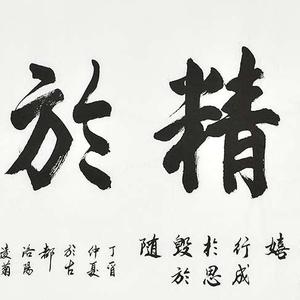 精於
嬉
行成
於思
毀於
随
丁酉
仲夏
於古
都
洛陽